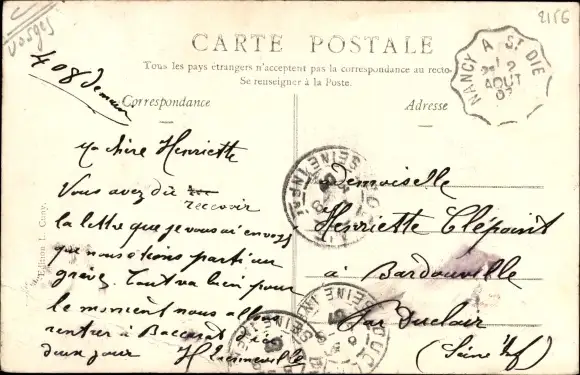 Vosges
2156
CARTE POSTALE
Tous les pays étrangers n'acceptent pas la correspondance au recto.
Se renseigner à la Poste.
Correspondance
Adresse
NANCY A St DIE
AOUT
07
Ma chère Henriette
Vous avez dû
recevoir
la lettre que je vous ai envoyé
que nous étions parti en
grève. Tout va bien pour
le moment nous allons
rentrer à Baccarat d'ici
deux jour
Mademoiselle
Henriette Clépoint
à Bardouville
Par Duclair
(Seine Inf)
SEINE INFRE
Edition L. Cony